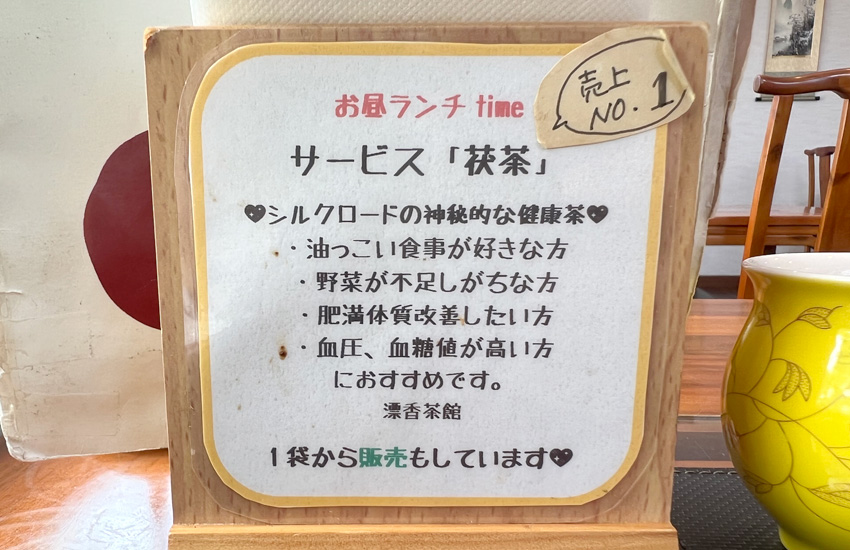 お昼ランチ time
売上
NO.1
サービス「茯茶」
♥シルクロードの神秘的な健康茶♥
・油っこい食事が好きな方
・野菜が不足しがちな方
・肥満体質改善したい方
・血圧、血糖値が高い方
におすすめです。
漂香茶館
1袋から販売もしています♥